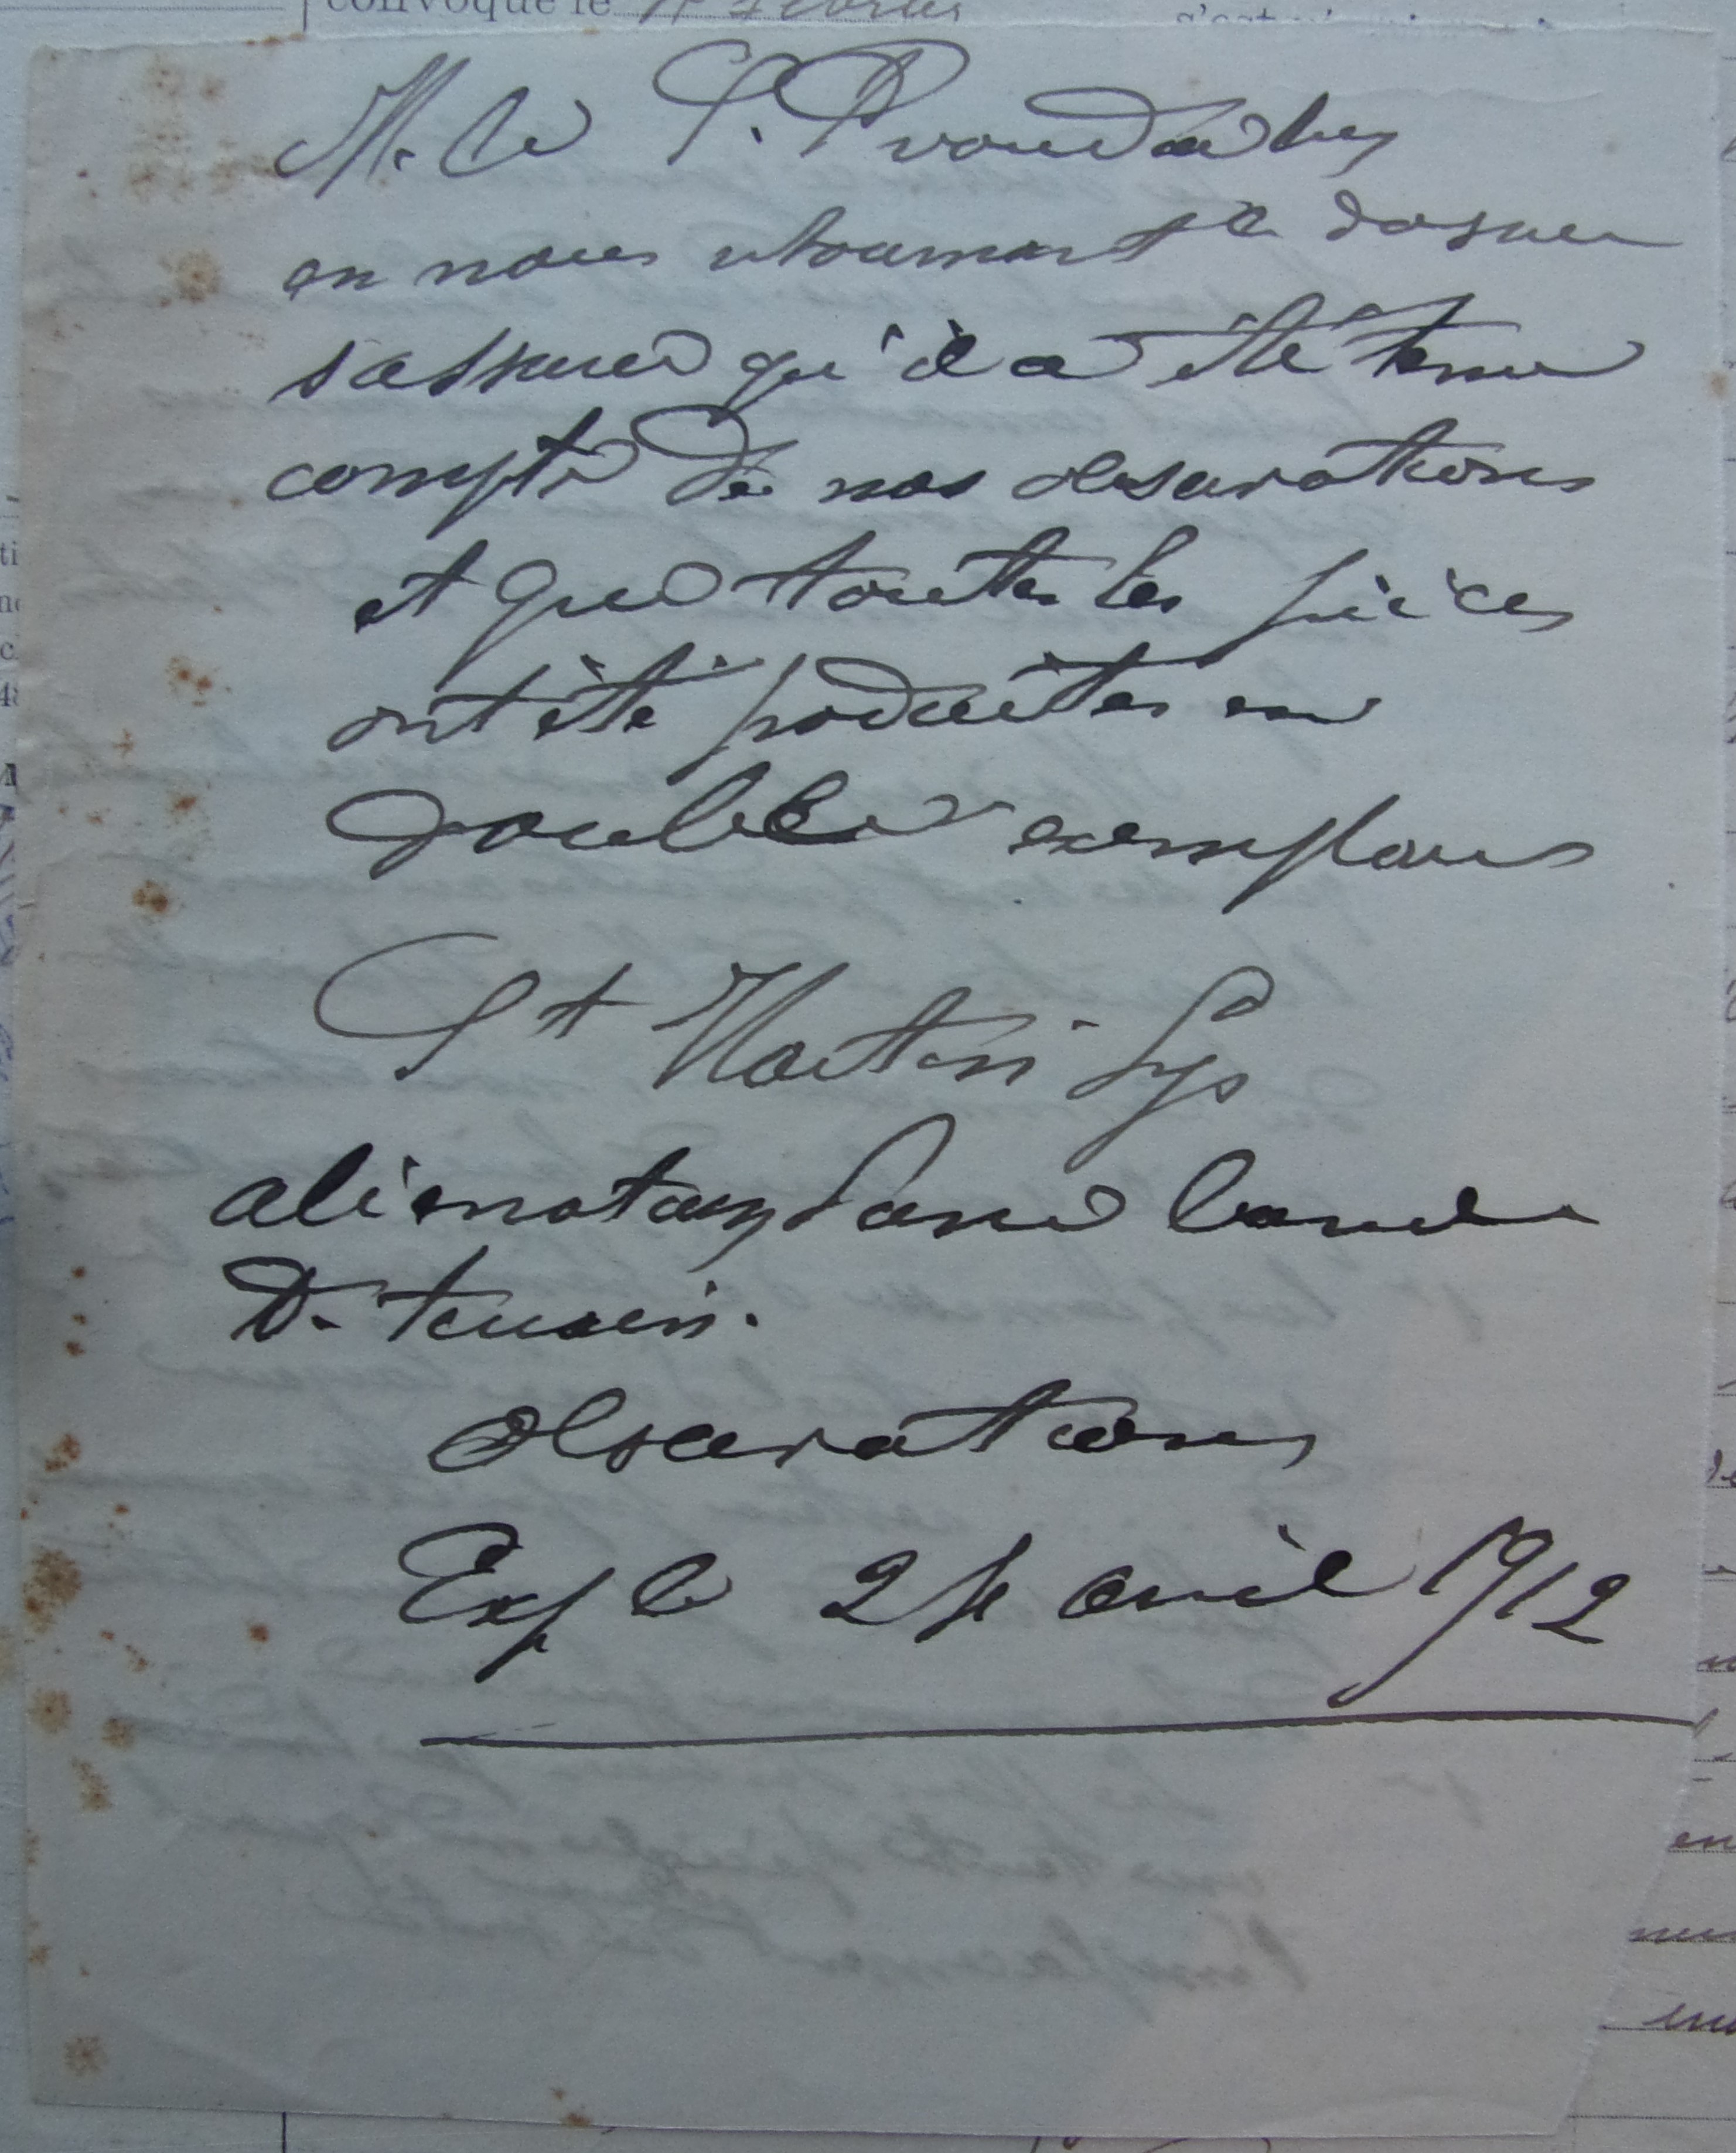 convoqué le
M. le S. P
en nous retournant le dossier
s'assurer qu'il a été tenu
compte de nos observations
et que toutes les pièces
ont été produites en
double exemplaires
St Martin Lys
alienation d'une bande
De terrain.
observations
Exp le 24 avril 1912